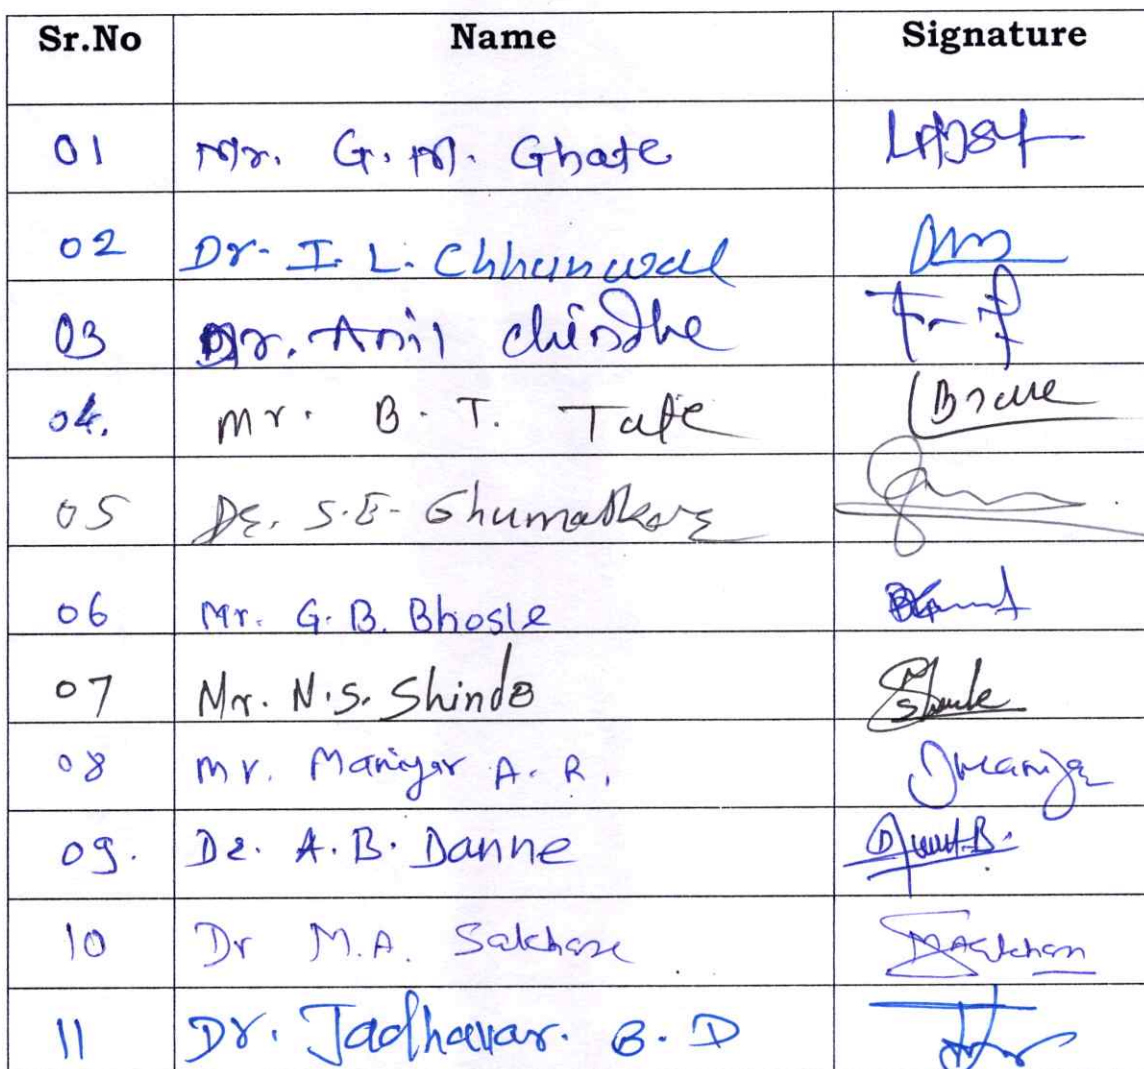 Sr.No Name Signature
01 Mr. G. M. Ghate
02 Dr. I. L. Chhanwal
03 Dr. Anil Chindhe
04. Mr. B. T. Tate
05 Dr. S.E. Ghumatkar
06 Mr. G. B. Bhosle
07 Mr. N.S. Shinde
08 Mr. Maniyar A. R.
09. Dr. A. B. Danne
10 Dr M.A. Sakhare
11 Dr. Jadhavar. B. D